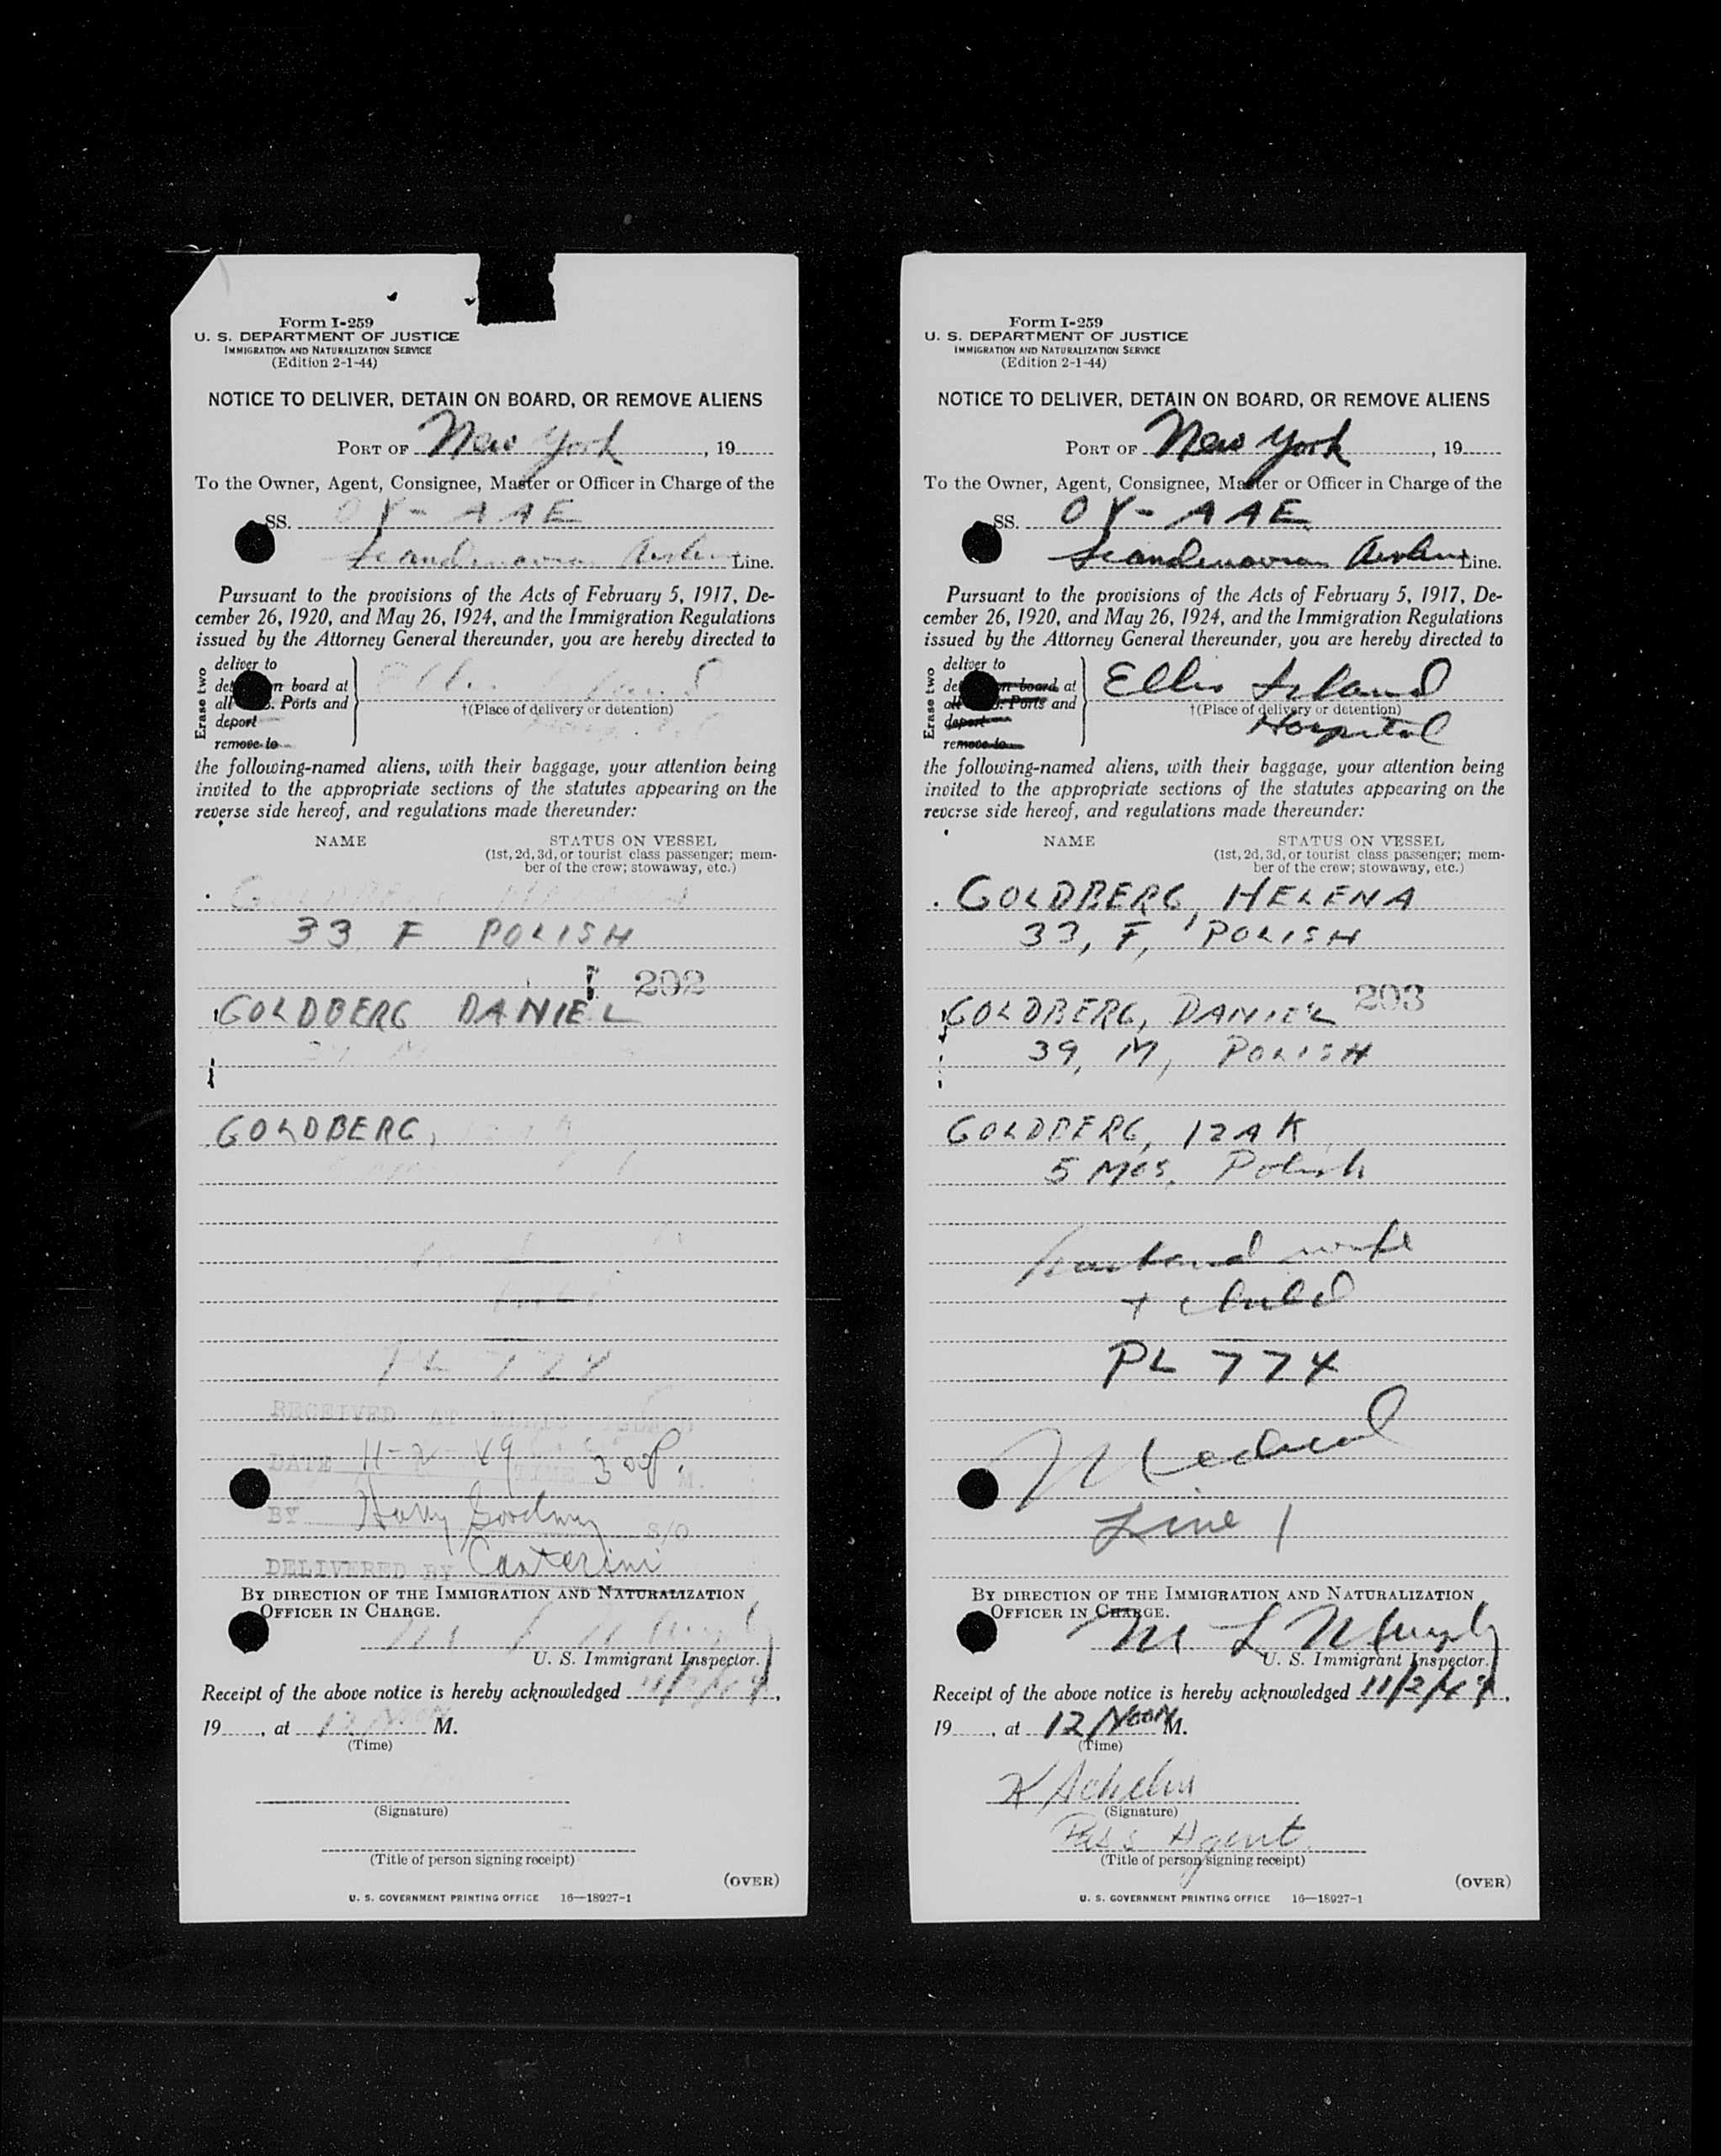 Form I-259
U. S. DEPARTMENT OF JUSTICE
IMMIGRATION AND NATURALIZATION SERVICE
(Edition 2-1-44)
NOTICE TO DELIVER, DETAIN ON BOARD, OR REMOVE ALIENS
PORT OF New York, 19
To the Owner, Agent, Consignee, Master or Officer in Charge of the
SS. OY-AAE
Scandinavian Line.
Pursuant to the provisions of the Acts of February 5, 1917, De-
cember 26, 1920, and May 26, 1924, and the Immigration Regulations
issued by the Attorney General thereunder, you are hereby directed to
Erase two
deliver to
board at
Ports and
deport
remove to
†(Place of delivery or detention)
the following-named aliens, with their baggage, your attention being
invited to the appropriate sections of the statutes appearing on the
reverse side hereof, and regulations made thereunder:
NAME STATUS ON VESSEL
(1st, 2d, 3d, or tourist class passenger; mem-
ber of the crew; stowaway, etc.)
33 F POLISH
202
GOLDBERG DANIEL
GOLDBERG,
PL 774
RECEIVED AT ELLIS ISLAND
DATE 11-2-49 TIME 3 00 P. M.
BY Harry S/O
DELIVERED BY
BY DIRECTION OF THE IMMIGRATION AND NATURALIZATION
OFFICER IN CHARGE.
U. S. Immigrant Inspector.
Receipt of the above notice is hereby acknowledged 11/2/49,
19, at 12 Noon M.
(Time)
(Signature)
(Title of person signing receipt)
(OVER)
U. S. GOVERNMENT PRINTING OFFICE 16—18927-1
Form I-259
U. S. DEPARTMENT OF JUSTICE
IMMIGRATION AND NATURALIZATION SERVICE
(Edition 2-1-44)
NOTICE TO DELIVER, DETAIN ON BOARD, OR REMOVE ALIENS
PORT OF New York, 19
To the Owner, Agent, Consignee, Master or Officer in Charge of the
SS. OY-AAE
Scandinavian Line.
Pursuant to the provisions of the Acts of February 5, 1917, De-
cember 26, 1920, and May 26, 1924, and the Immigration Regulations
issued by the Attorney General thereunder, you are hereby directed to
Erase two
deliver to
board at
Ports and
deport
remove to
Ellis Island
†(Place of delivery or detention)
Hospital
the following-named aliens, with their baggage, your attention being
invited to the appropriate sections of the statutes appearing on the
reverse side hereof, and regulations made thereunder:
NAME STATUS ON VESSEL
(1st, 2d, 3d, or tourist class passenger; mem-
ber of the crew; stowaway, etc.)
GOLDBERG, HELENA
33, F, POLISH
203
GOLDBERG, DANIEL
39, M, POLISH
GOLDBERG, IZAK
5 MOS. Polish
husband wife
+ child
PL 774
Medical
Line 1
BY DIRECTION OF THE IMMIGRATION AND NATURALIZATION
OFFICER IN CHARGE.
M L Murphy
U. S. Immigrant Inspector.
Receipt of the above notice is hereby acknowledged 11/2/49,
19, at 12 Noon M.
(Time)
(Signature)
Pass Agent
(Title of person signing receipt)
(OVER)
U. S. GOVERNMENT PRINTING OFFICE 16—18927-1